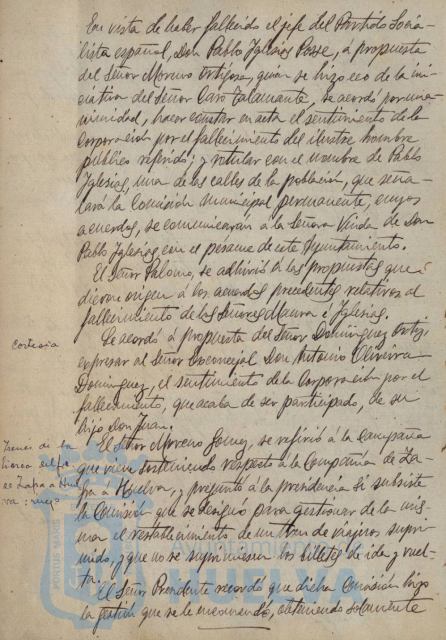 En vista de haber fallecido el jefe del Partido Socia-
lista español, Don Pablo Iglesias Posse, a propuesta
del Señor Moreno Ortigosa, quien se hizo eco de la ini-
ciativa del Señor Caso Talamante, se acordó por una-
nimidad, hacer constar en acta el sentimiento de la
Corporación por el fallecimiento del ilustre hombre
público referido; y rotular con el nombre de Pablo
Iglesias, una de las calles de la población, que seña-
lará la Comisión municipal permanente, cuyos
acuerdos, se comunicarán a la Señora Viuda de Don
Pablo Iglesias, con el pesame de este Ayuntamiento.
El Señor Palomo, se adhirió a las propuestas que
dieron origen á los acuerdos precedentes relativos al
fallecimiento de los Señores Maura e Iglesias.
Cortesia
Se acordó á propuesta del Señor Domínguez Ortiz,
expresar al Señor Exconcejal Don Antonio Oliveira
Domínguez, el sentimiento de la Corporación por el
fallecimiento, que acaba de ser participado, de su
hijo Don Juan.
Trenes de la
linea del fe
Zafa a Hue
va: ruego
El Señor Moreno Gomez, se refirió á la Campaña
que viene sosteniendo respecto á la Compañía de Za-
fra a Huelva, y preguntó á la presidencia si subsiste
la Comisión que se designó para gestionar de la mis-
ma el restablecimiento de un tren de viajeros supri-
mido, y que no se suprimiesen los billetes de ida y vuel-
ta.
El Señor Presidente recordó que dicha Comisión hizo
la gestión que se le encomendó, obteniendo solamente
PORTUS MARIS
HUELVA